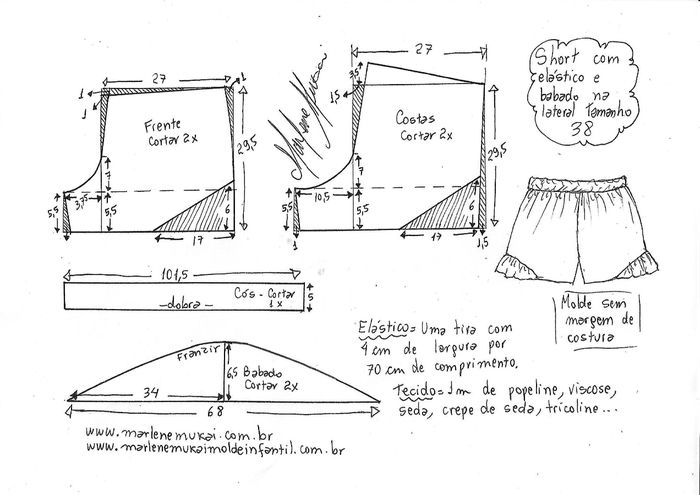 27
1
1
1
Frente
Cortar 2x
29,5
7
3,75
5,5
5,5
6
17
Marlene Mukai
27
3,5
1,5
Costas
Cortar 2x
29,5
7
10,5
5,5
5,5
6
17
1
1,5
Short com
elástico e
babado na
lateral Tamanho
38
101,5
Cós - Cortar
1x
-dobra-
5
Molde sem
margem de
costura
Franzir
6,5
Babado
Cortar 2x
34
68
Elástico= Uma tira com
4 cm de largura por
70 cm de comprimento.
Tecido= 1m de popeline, viscose,
seda, crepe de seda, tricoline...
www.marlenemukai.com.br
www.marlenemukaimoldeinfantil.com.br